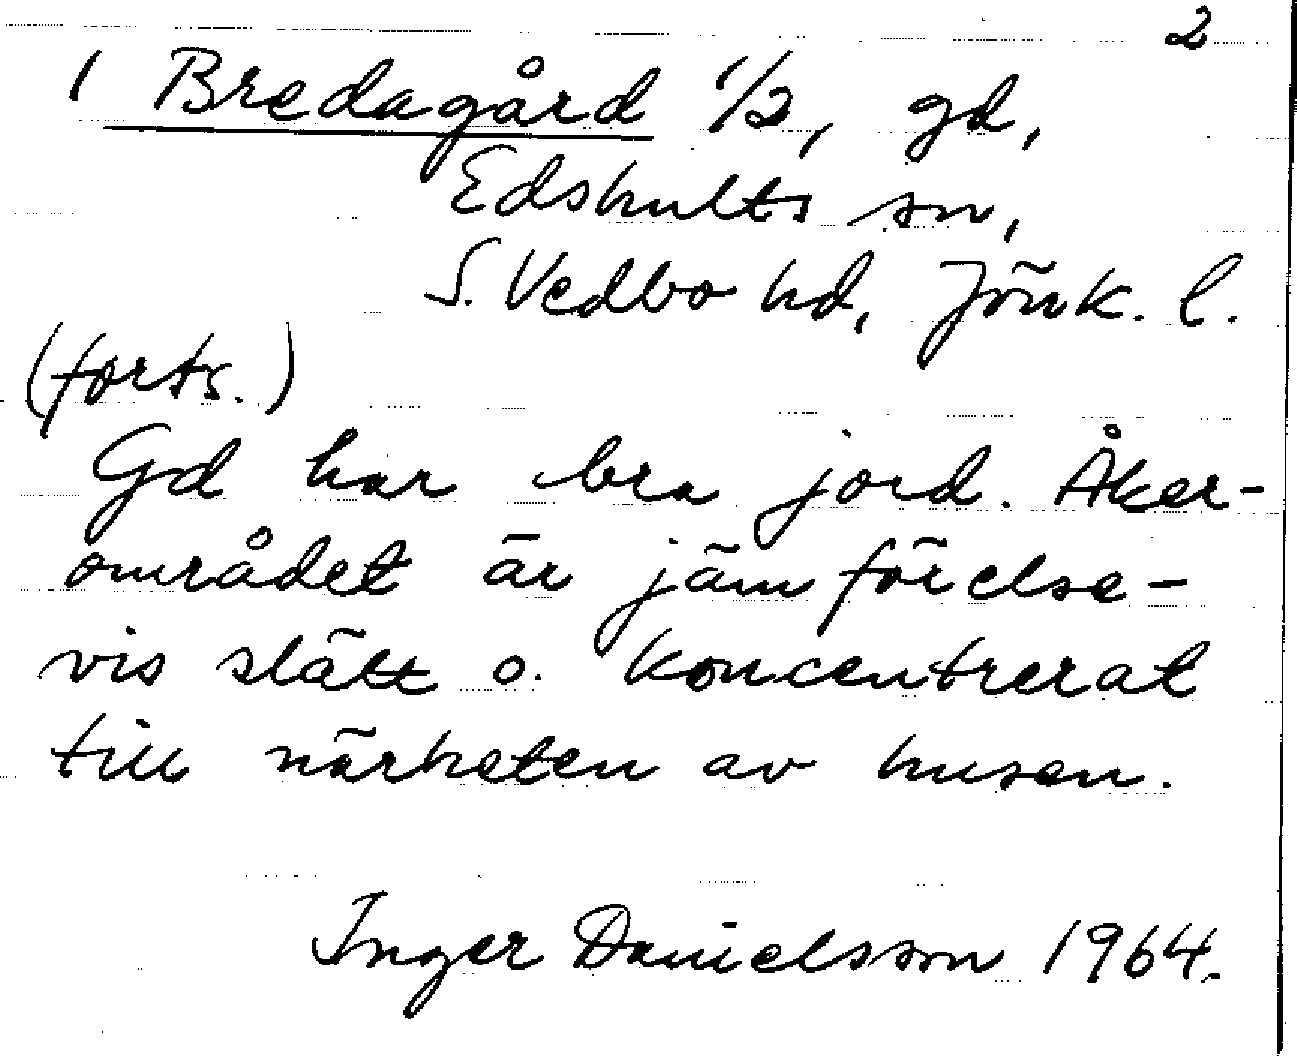 2
1 Bredagård 1/2, gd,
Edshults sn,
S. Vedbo hd, Jönk. l.
(forts.)
Gd har bra jord. Åker-
området är jämförelse-
vis slätt o. koncentrerat
till närheten av husen.
Inger Danielsson 1964.